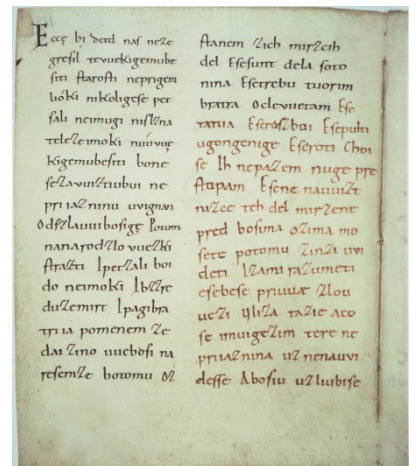 Eccę bi detd naſ neze
greſil tevuekigemube
ſiti ſtaroſti neprigem
lióki nikoligeſe pet
ſali neimugi niſlzna
teleze imoki nuúvue
kigemubeſiti bone
ſezavuiztiubui ne
priiazninu uvignan
Odſzlauuiboſige Potom
nanarodzlo vuezki
ſtrazti Ipetzali boi
do neimoki Ibzzre
duzemirt Ipagibra
triia pomenem ze
dai zino uueboſi na
reſemze botomu oz
ſtanem zich mirzcih
del Eſeſunt dela ſoto
nina Eſetrebu tuorim
bratra Oclevuetam Eſe
tatua Eſerazboi Eſepulti
ugongenige Eſeroti Choi
ſe Ih nepazem nuge pre
ſtopam Eſene nauuizt
nizce teh del mirzene
pred boſima ozima mo
ſete potomu zinzi uvi
deti Izami razumeti
eſebeſe priuuae zlou
uezi Uliza tazie aco
ſe imuigezim tere ne
priiaznina uz nenauvi
deſſe Aboſiu uzliubiſe